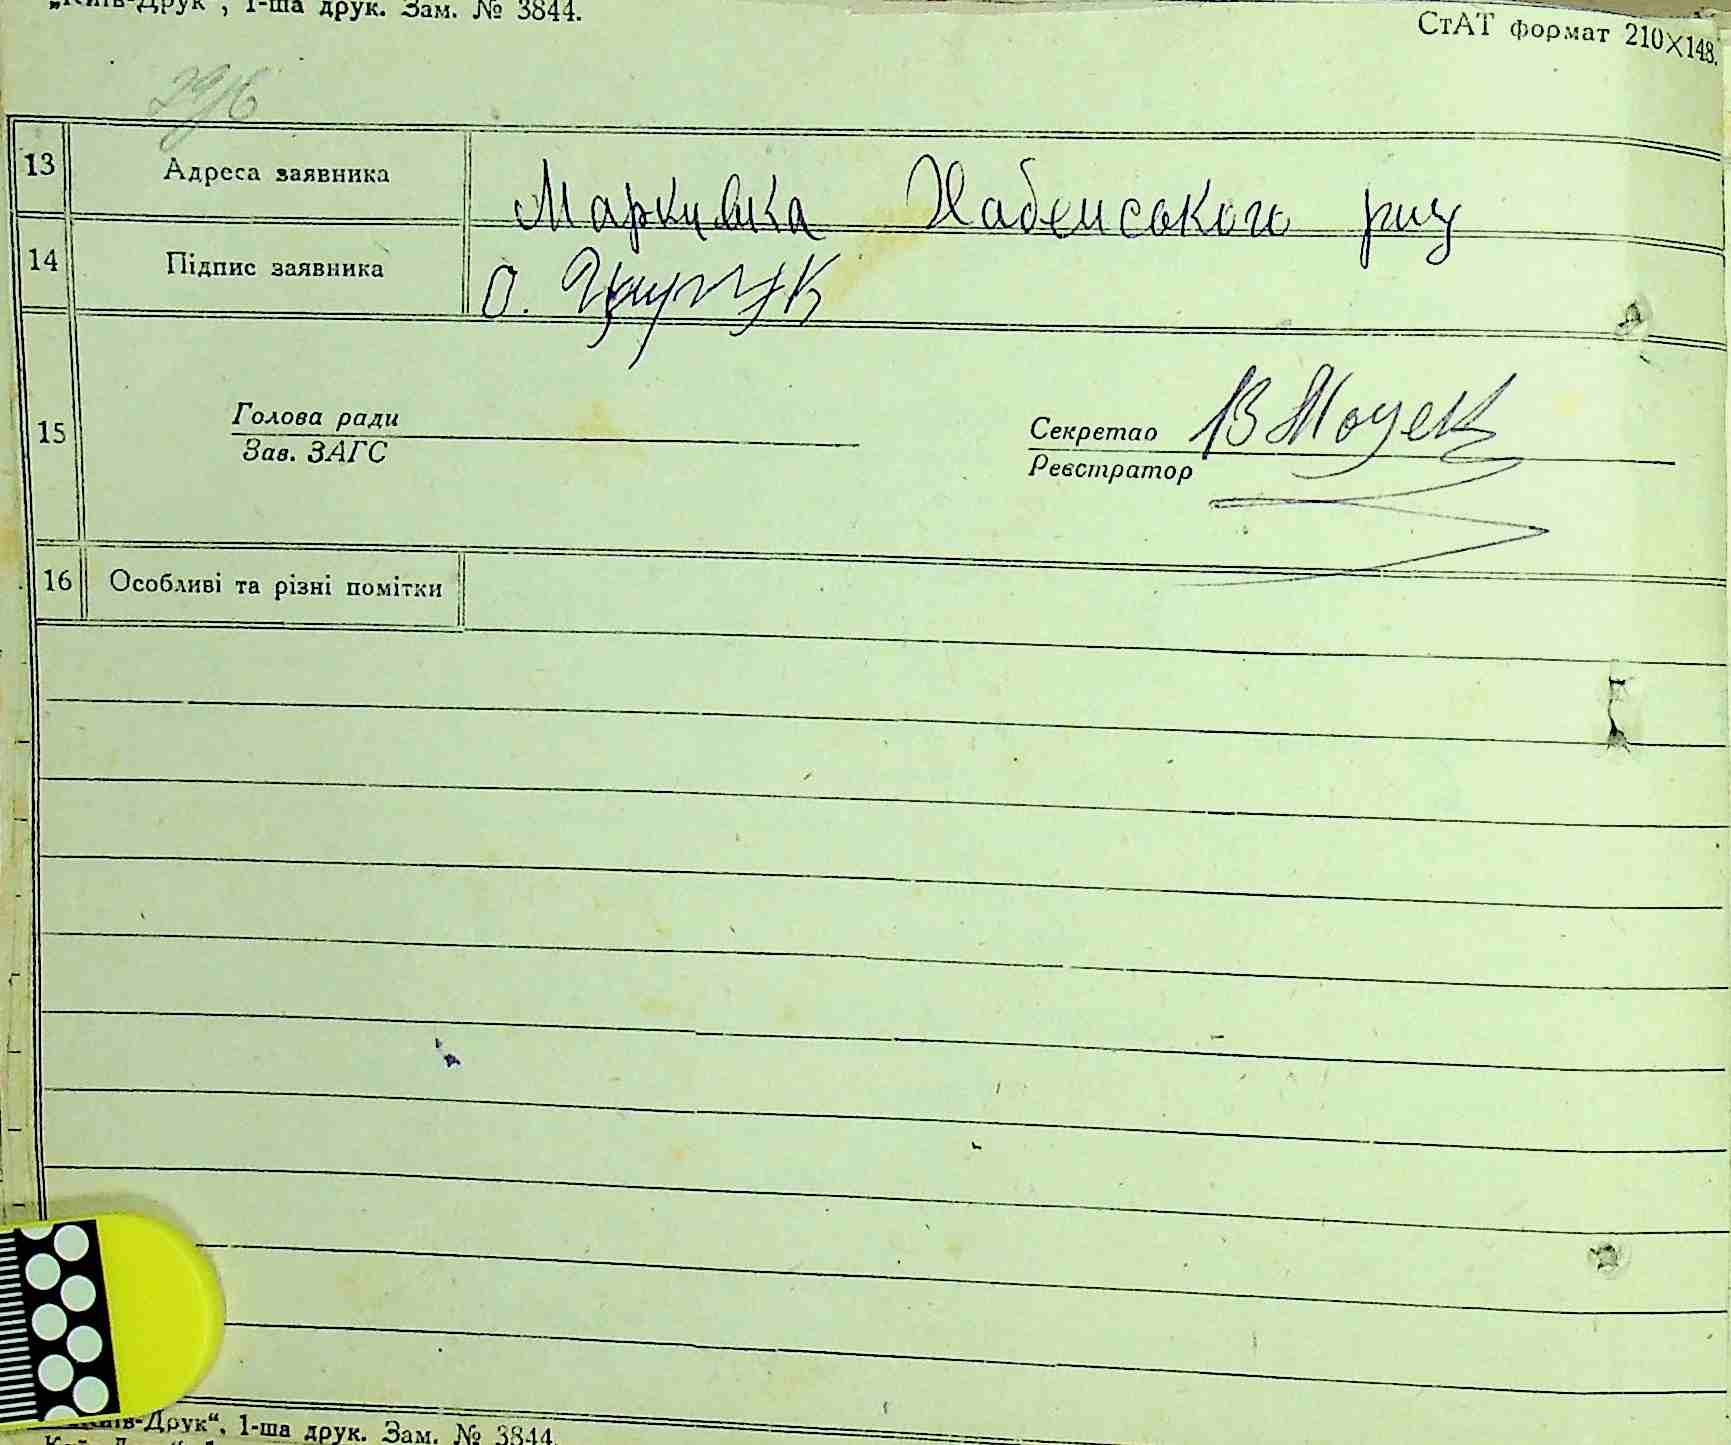 „Київ-Друк", 1-ша друк. Зам. № 3844.
СтАТ формат 210X148.
13 Адреса заявника Хабенського
14 Підпис заявника О.
15
Голова ради
Зав. ЗАГС
Секретар
Реєстратор
16 Особливі та різні помітки
„Київ-Друк“, 1-ша друк. Зам. № 3844.